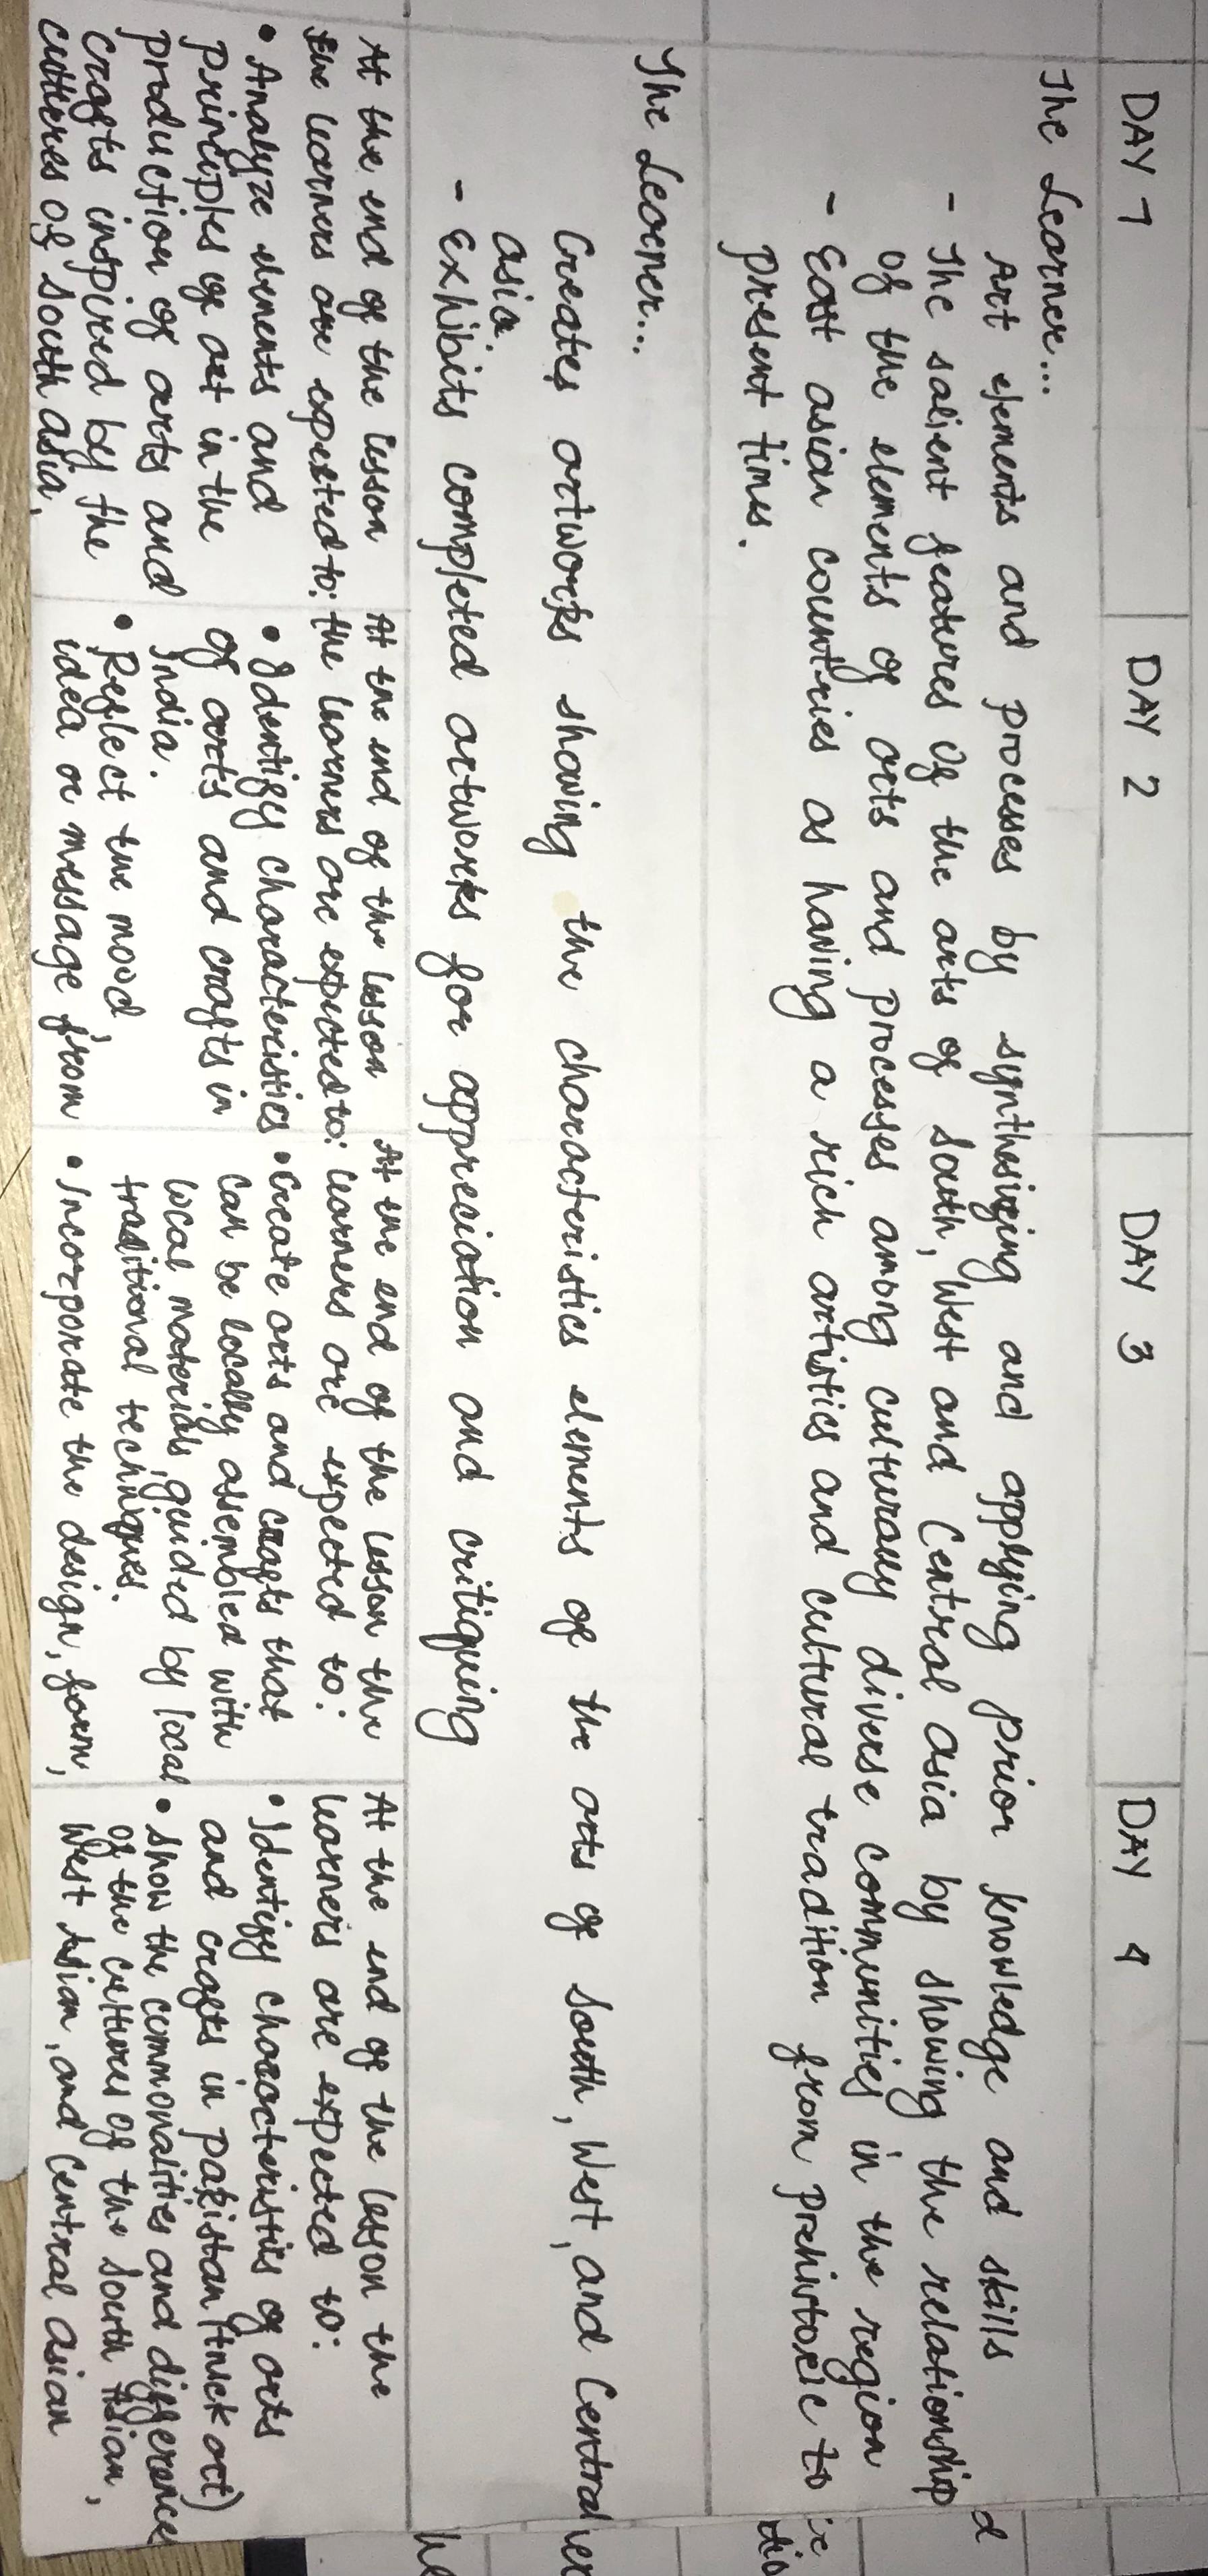 DAY 1
DAY 2
DAY 3
DAY 4
The Learner...
Art elements and processes by synthesizing and applying prior knowledge and skills
- The salient features of the arts of South, West and Central asia by showing the relationship
of the elements of arts and processes among culturally diverse communities in the region
- East asian countries as having a rich artistics and cultural tradition from prehistoric to
present times.
The Learner...
Creates artworks showing the characteristics elements of the arts of South, West, and Central
asia.
- Exhibits completed artworks for appreciation and critiquing
At the end of the lesson
the learners are expected to:
• Analyze elements and
principles of art in the
production of arts and
crafts inspired by the
cultures of South asia.
At the end of the lesson
the learners are expected to:
• Identify characteristics
of arts and crafts in
India.
• Reflect the mood,
idea or message from
At the end of the lesson the
learners are expected to:
• Create arts and crafts that
can be locally assembled with
local materials, guided by local
traditional techniques.
• Incorporate the design, form,
At the end of the lesson the
learners are expected to:
• Identify characteristics of arts
and crafts in pakistan (truck art)
• show the commonalities and difference
of the cultures of the South Asian,
West Asian, and Central asian